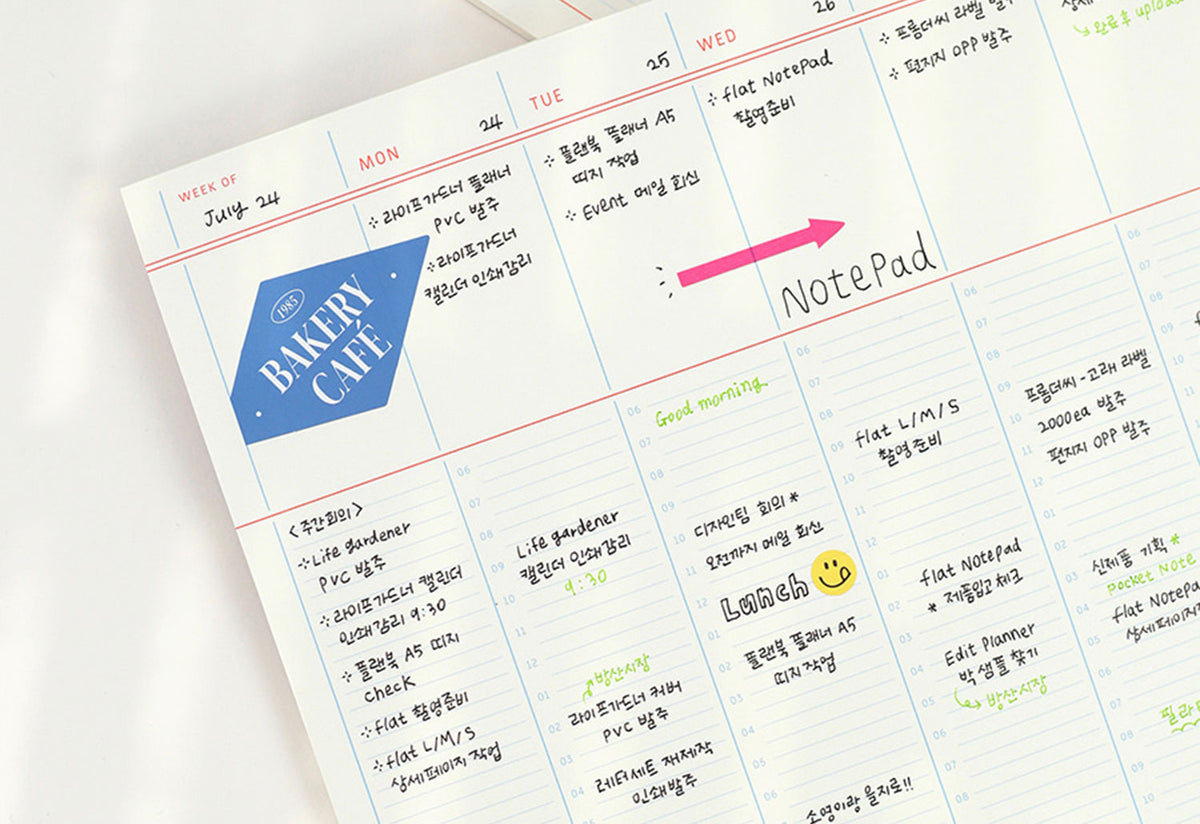 WEEK OF
July 24
MON
24
TUE
25
WED
26
⁘ 라이프가드너 플래너
PVC 발주
⁘ 라이프가드너
캘린더 인쇄감리
⁘ 플랜북 플래너 A5
띠지 작업
⁘ Event 메일 회신
⁘ flat NotePad
촬영준비
⁘ 프롬더씨 라벨
⁘ 편지지 OPP 발주
완료 후 upload
1985
BAKERY
CAFÉ
NotePad
<주간회의>
⁘ Life gardener
PVC 발주
⁘ 라이프가드너 캘린더
인쇄감리 9:30
⁘ 플랜북 A5 띠지
check
⁘ flat 촬영준비
⁘ flat L/M/S
상세페이지 작업
06
07
08
Life gardener
09
캘린더 인쇄감리
9:30
10
11
12
방산시장
01
라이프가드너 커버
02
PVC 발주
03
레터세트 재제작
04
인쇄발주
05
06
Good morning
07
08
09
디자인팀 회의 *
10
오전까지 메일 회신
11
Lunch
12
01
플랜북 플래너 A5
02
띠지 작업
03
04
05
06
소영이랑 을지로!!
06
07
08
flat L/M/S
09
촬영준비
10
11
12
01
flat NotePad
02
* 제품입고 체크
03
Edit Planner
04
박 샘플 찾기
05
방산시장
06
07
08
06
07
08
09
프롬더씨 - 고래 라벨
10
2000ea 발주
11
편지지 OPP 발주
12
01
02
신제품 기획 *
03
Pocket Note
04
flat NotePad
05
상세페이지
06
07
08
09
10
06
08
09
10
11